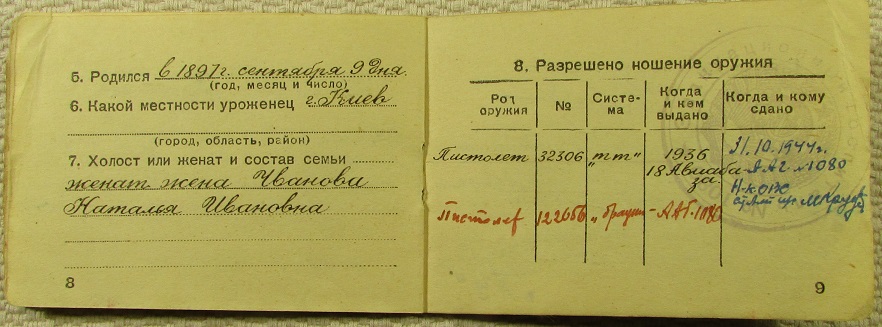 5. Родился в 1897г. сентября 9 дня.
(год, месяц и число)
6. Какой местности уроженец г. Киев
(город, область, район)
7. Холост или женат и состав семьи
женат жена Иванова
Наталья Ивановна
8
8. Разрешено ношение оружия
Род оружия
№
Систе-
ма
Когда
и кем
выдано
Когда и кому
сдано
Пистолет 32306 "тт" 1936
18 Авиаба-
за.
31.10.1944г.
ААГ 1080
Н-к ОВС
Пистолет 122656 „браунин" - ААГ. 1080
9